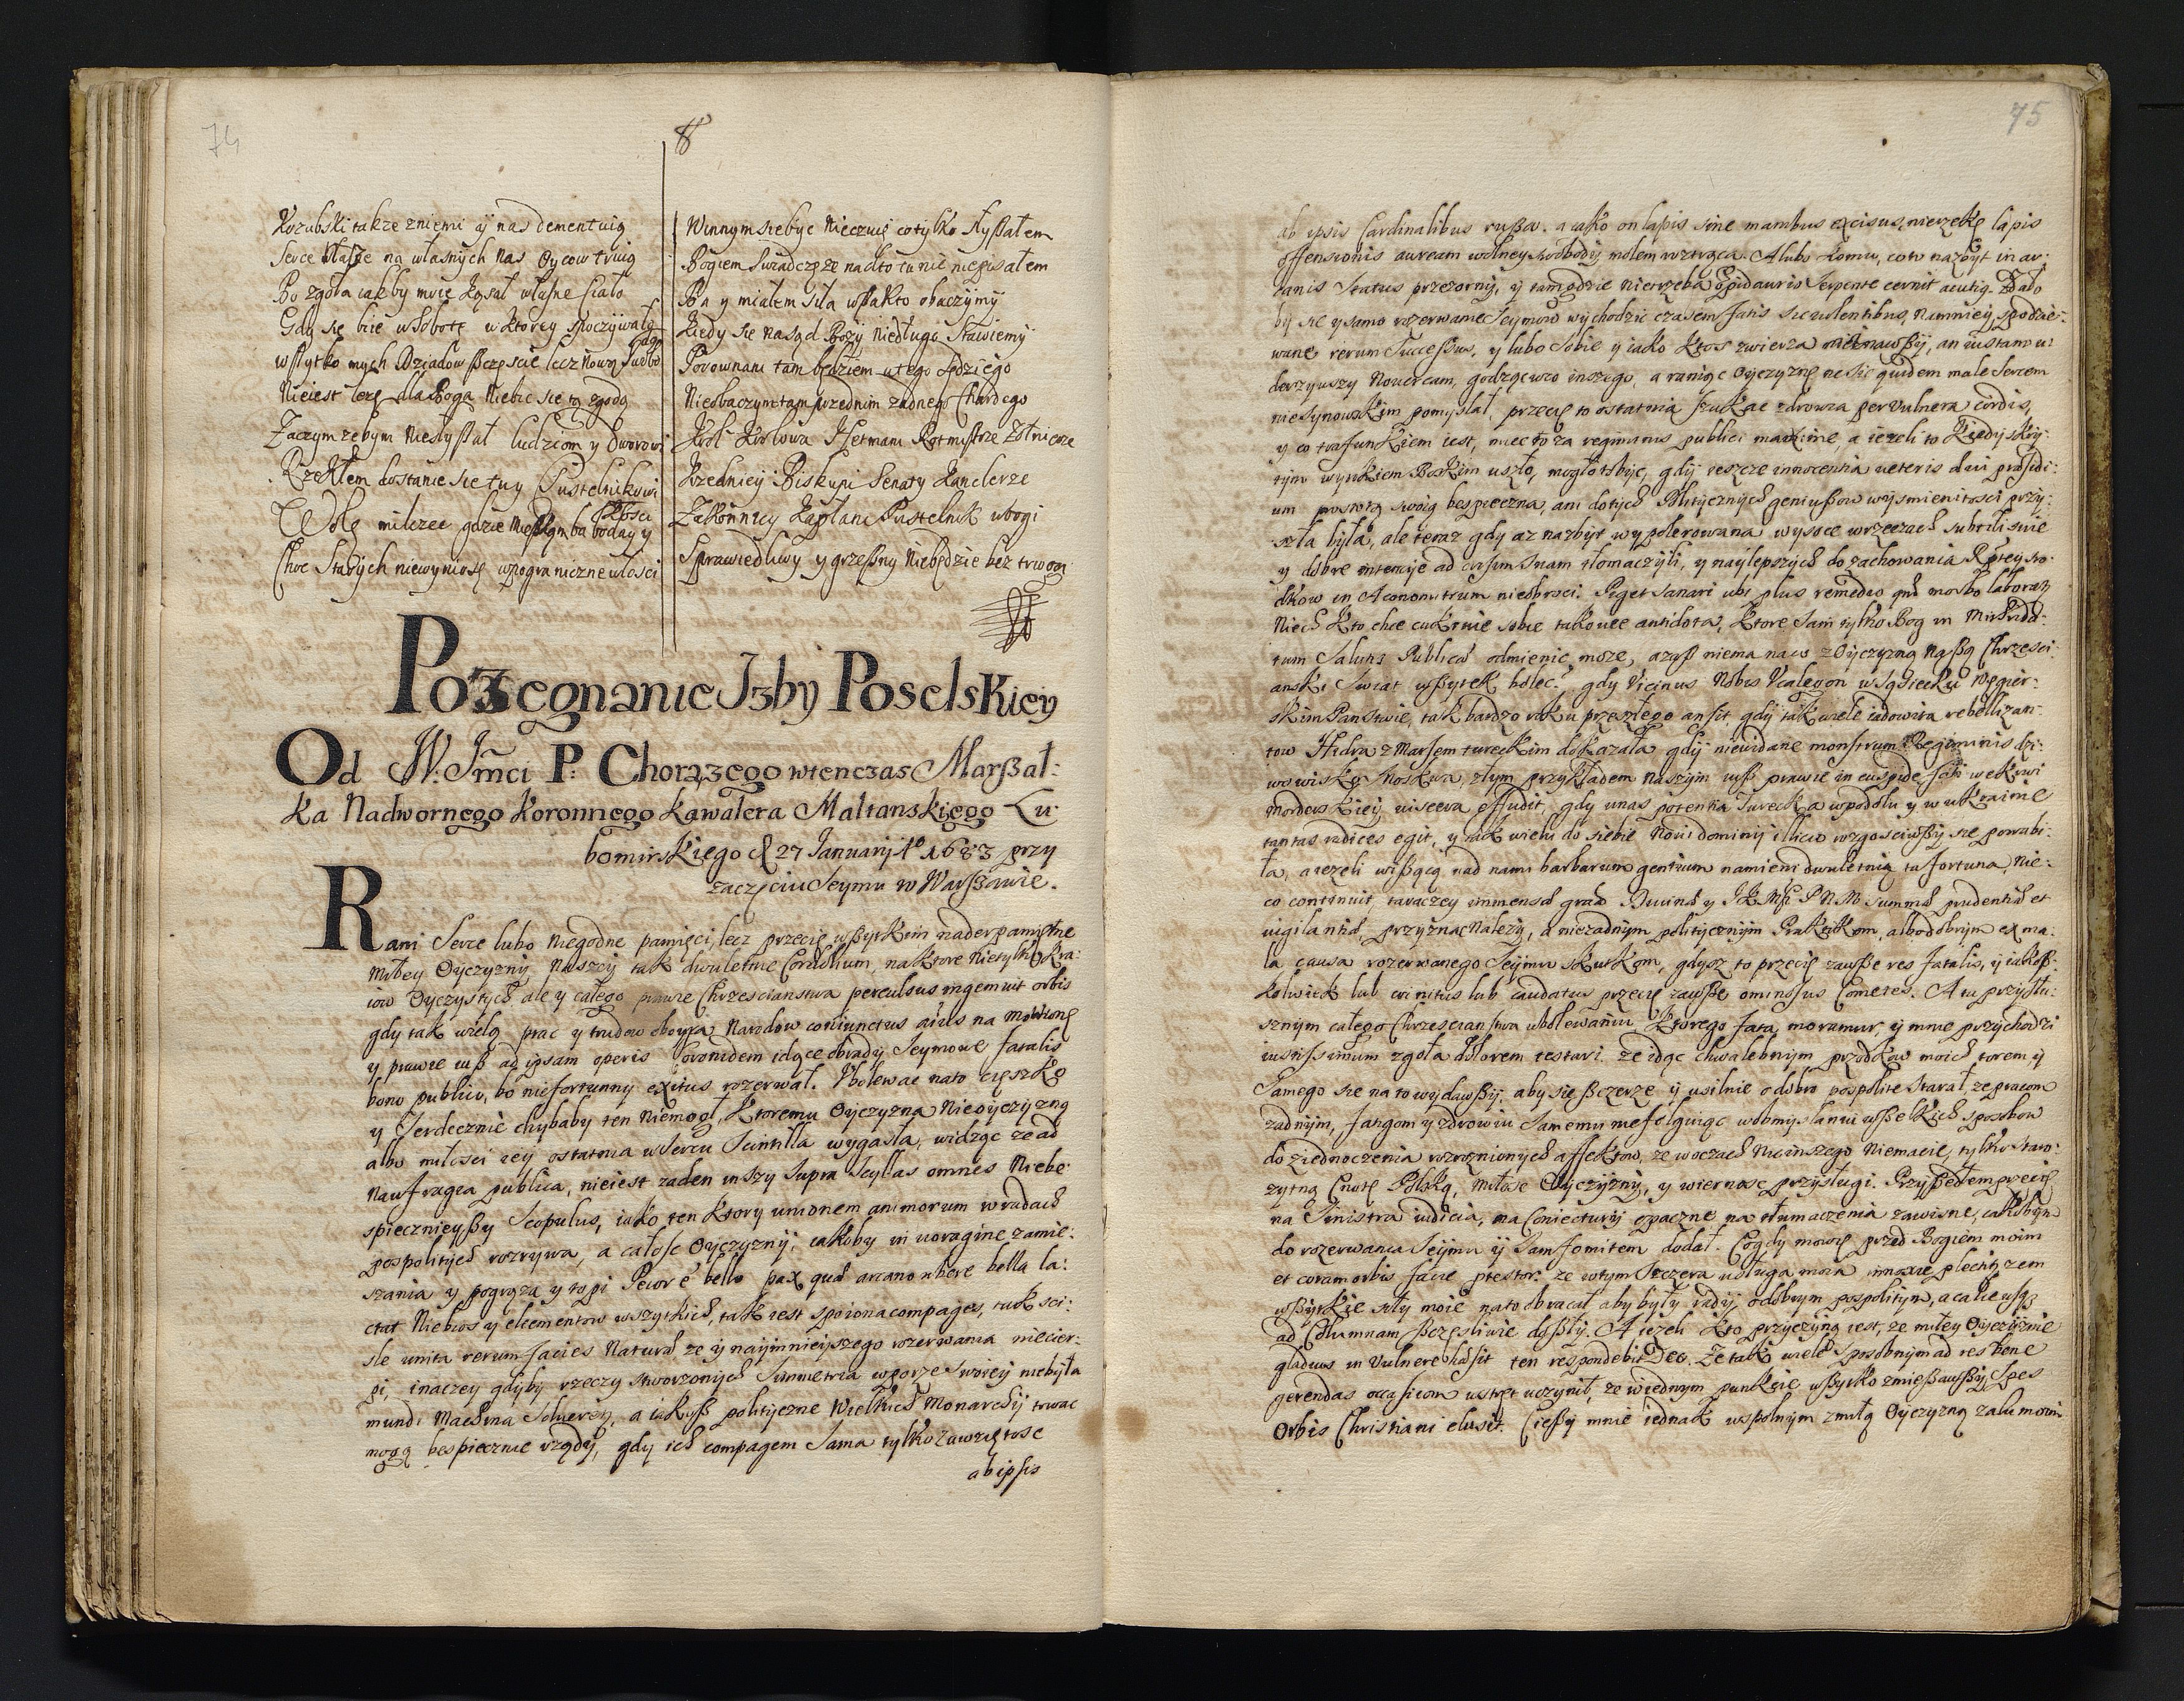 74
Kozubski takze zniemi ÿ nas dementuią
Serce Nasze na własnych nas Oycow truią
Bo zgoła iakby mnie kąsał własne ciało
Gdy się bie w Sobote w ktorey spoczywało
wszytko mych Dziadow szczęscie lecz Nową
Nieiest tezę dla Boga Niebie się tą zgodą
Zaczym zebym Niesłyszał ludziom y Dworowi
Rzekłem dostanie się tuy Pustelnikowi
Wolę milczec gdzie
Choc Starych niewyniosę wpograniczne włosci
Winnym się byc Nieczuię co tylko słyszałem
Bogiem Swiadczę ze nadto tu nic niepisałem
Ba y miałem siła wszakto obaczÿmÿ
Kiedy się na sąd Bozy niedługo Stawiemÿ
Porownani tam będziem u tego Sędziego
Nieobaczym tam przednim zadnego Chardego
Krol Krolowa Hetmani Rotmistrze Zołnierze
Urzednicÿ Biskupi Senatÿ Kanclerze
Zakonnicy Kapłani Pustelnik ubogi
Sprawiedliwy y grzeszny Niebędzie bez trwogi
Pozegnanie Izbÿ Poselskieÿ
Od W: Jmci P: Chorązego wtenczas Marszał:
ka Nadwornego Koronnego Kawalera Maltanskięgo Lu:
bomirskiego d 27 Januarij Ao 1683 przy
zaczęciu Seymu w Warszawie.
Rani Serce lubo Niegodne pamięci, lecz przecię wszytkim nader pamiętne
Miłey Oyczyznÿ Naszeÿ tak dwuletnie Consilium, na ktore Nietylko kra:
iow Oyczystych ale y całego prawie Chrzescianstwa perculsus ingemuit orbis
gdy tak wielą prac y trudow oboyga Narodow coniunctus
y prawie iusz ad ipsam operis Coronidem idące obrady Seymowe fatalis
bono publico, bo niefortunny exitus rozerwał. Ubolewac nato cięszko
y Serdecznie chybaby ten Niemogł, ktoremu Oyczyzna Nieoÿczÿzną
albo miłosci iey ostatnia w Sercu Scintilla wygasła, widząc ze ad
Naufragia publica, nieiest zaden inszy supra Scyllas omnes Niebe:
spiecznieyszy Scopulus, iako ten ktory unionem animorum w radach
pospolitÿch rozrywa, a całosc Oÿczyznÿ, iakoby in voragine zamie:
szania y pogrąza y topi Peiore bello pax quae arcano ubere bella la:
ctat Niebios y elementow wszytkich, tak iest spoiona compages, tak sci:
sle unita rerum facies Natura, ze ÿ naÿmnieÿszego rozerwania niecier:
pi, inaczey gdÿbÿ rzeczy stworzonÿch Simmetria w porze Swoieÿ niebyła
mundi Machina solveret, a iakusz politÿczne Wielkich Monarchÿ trwac
mogą bespiecznie rządÿ, gdy ich compagem Sama tylko zawziętosc
ab ipsis
75
ab ipsis Cardinalibus rusza. a iako on lapis sine manibus excisus, nierzekę lapis
offensionis auream wolney swobodÿ molem roztrąca. A lubo komu, co w nazbÿt in ar:
canis Status przezornÿ, y tam gdzie nietrzeba Epidauris Serpente cernit acutiq. Zdało
bÿ się y samo rozerwanie Seymow wychodzic czasem fatis sic volentibus, namniey spodzie:
wane rerum Successus, y lubo Sobie y iako ktos zwierza
derzywszy Novercam, godzącemo inszego, a raniąc Oyczyznę nesic quidem male Sercem
niesynowskim pomyslał, przecię to ostatnia szukac zdrowia per vulnera cordis,
y co trafunkiem iest, miec to za regiminis publici maxime, a iezeli to kiedÿs skrÿ:
tym wyrokiem Boskim uszło, mogło to bÿc, gdÿ ieszcze innocentia veteris
um prostotą swoią bespieczna, ani dotÿch Politycznÿch geniuszow wÿsmienitosci przÿ:
szła była, ale teraz gdy az nazbÿt wypolerowana wysoce w rzeczach subtilisnie
y dobre intencÿe ad tłomaczÿli, y naÿlepszÿch do zachowania Rptey sro:
dkow in Aconomitrum nieobroci. Piget Sanari ubi plus remedio qm morbo laborat
Niech kto chce cukruie sobie takowe antidota, ktore Sam tÿlko Bog in Mithrida:
tum Salutis Publicae odmienic moze, azasz niema nam z Oyczyzną Naszą Chrzesci:
anski Swiat wszytek bolec? gdy Vicinus Nobis Ucalegon w Sąsiecku Węgier:
skim Panstwie, tak bardzo roku przeszłego arsit, gdÿ tak wiele iadowita rebellizan:
tow Hidra z Marsem tureckim dokazała gdÿ niewidane monstrum Regiminis dzi:
wowisko Moskwa, złym przykładem naszÿm iusz prawie in cuspide
mordeuskieÿ viscera effudit, gdy unas potentia Turecka w podolu y w ukrainie
tantas radices egit, y tak wielu do siebie Novi dominij illicio rozgosciwszÿ się powabi:
ła, a iezeli wiszącą nad nami barbarum gentium namieni dwuletnią ta fortuna, nie:
co continuit, ta raczey immensa gratia Divina y JKMsci P N M summa prudentia et
vigilantia, przyznac Nalezy, a niezadnÿm politÿcznÿm Praktikom, albo dobrÿm ex ma:
la causa rozerwanego Seÿmu skutkom, gdysz to przecię zawsze res fatalis, ÿ iakosz:
kolwiek lub crinitus lub caudatus przecię zawsze ominosus Cometes. A tu przÿ słu:
sznym całego Chrzescianstwa ubolewaniu, ktorego fata, moramur, ÿ mnie przÿchodzi
iustissimum zgoła dolorem testari. ze idąc chwalebnÿm przodkow moich torem, ÿ
Samego się na to wÿdawszÿ, aby się szczerze ÿ usilnie o dobro pospolite starał, ze pracom
zadnÿm, fatigom y zdrowiu Samemu niefolguiąc w obmÿslaniu wszelkich sposobow
do ziednoczenia rozroznionych affektow, ze w oczach Nic inszego Niemaiąc, tylko staro:
zytną Cnotę Polską, miłosc Oyczyznÿ, y wiernosc przysługi. Przyszedłem przecię
na Sinistra iudicia, na Coniecturÿ opaczne na tłumaczenia zawisne, iakobÿm
do rozerwania Seÿmu ÿ Sam fomitem dodał. Co gdy mowię przed Bogiem moim
et coram orbis facie ptestor. ze w tym Szczera usługa moia innoxie plectit, zem
wszÿtkie siły moie na to obracał, abÿ bÿły radÿ o dobrym pospolitym, a całe
ad Columnam szczęsliwie doszłÿ. A iezeli kto przÿczÿną iest, ze miłey Oÿczÿznie
gladius in vulnere haesit ten respondebit Deo. Ze tak wiele sposobnÿm ad res bene
gerendas occasiom wstręt uczynił, ze w iednym punkcie wszytko zmieszawszÿ, Spes
Orbis Christiani elusit. Cieszÿ mnie iednak wspolnÿm z miłą Oÿczÿzną zalu moim